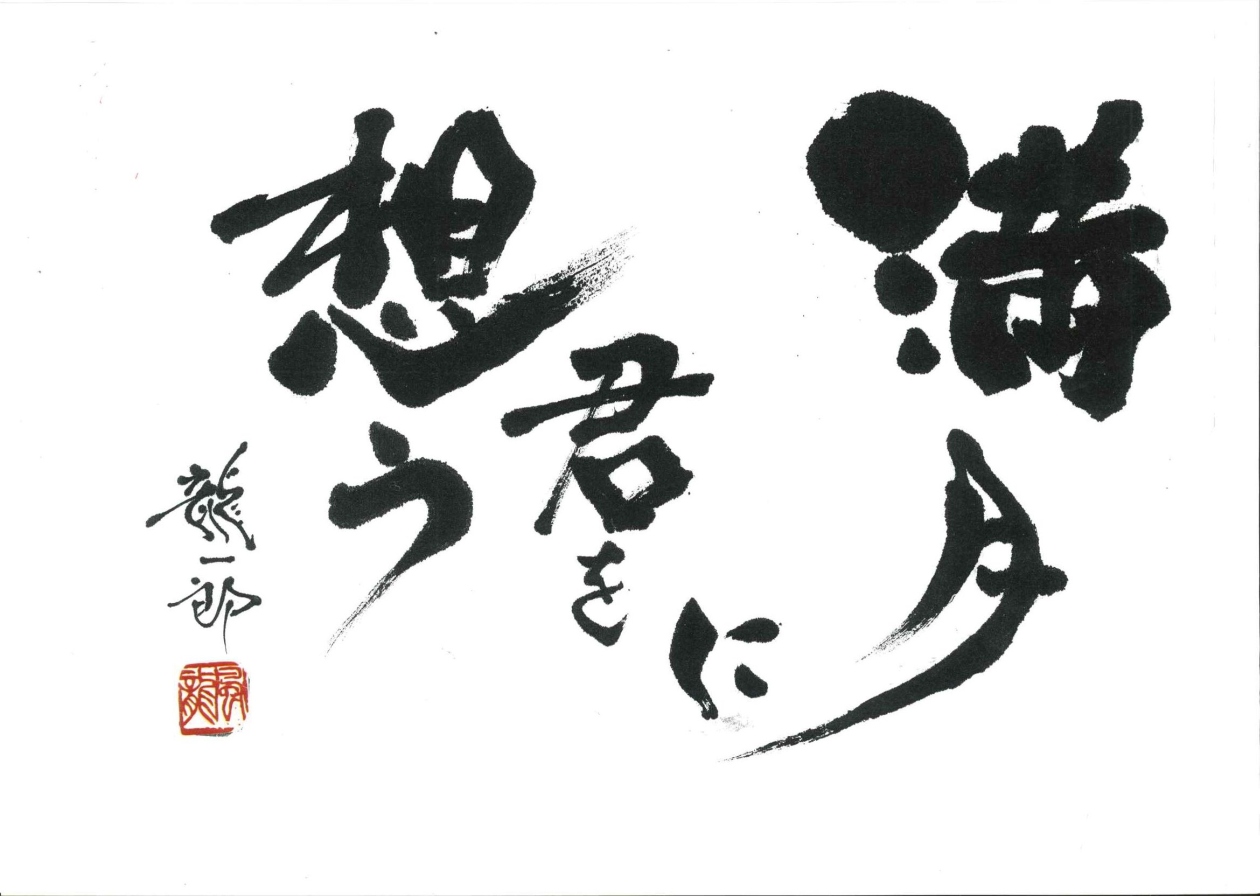 満月
に
君を
想う
龍一郎
風龍